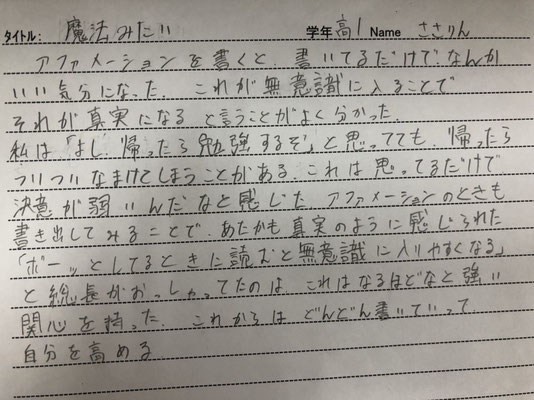 タイトル: 魔法みたい 学年 高1 Name ささりん
アファメーションを書くと、書いてるだけでなんか
いい気分になった。これが無意識に入ることで
それが真実になると言うことがよく分かった。
私は「よし、帰ったら勉強するぞ」と思ってても、帰ったら
ついついなまけてしまうことがある。これは思ってるだけで
決意が弱いんだなと感じた。アファメーションのときも
書き出してみることで、あたかも真実のように感じられた
「ボーッとしてるときに読むと無意識に入りやすくなる」
と総長がおっしゃってたのは、これはなるほどなと強い
関心を持った。これからはどんどん書いていって
自分を高める